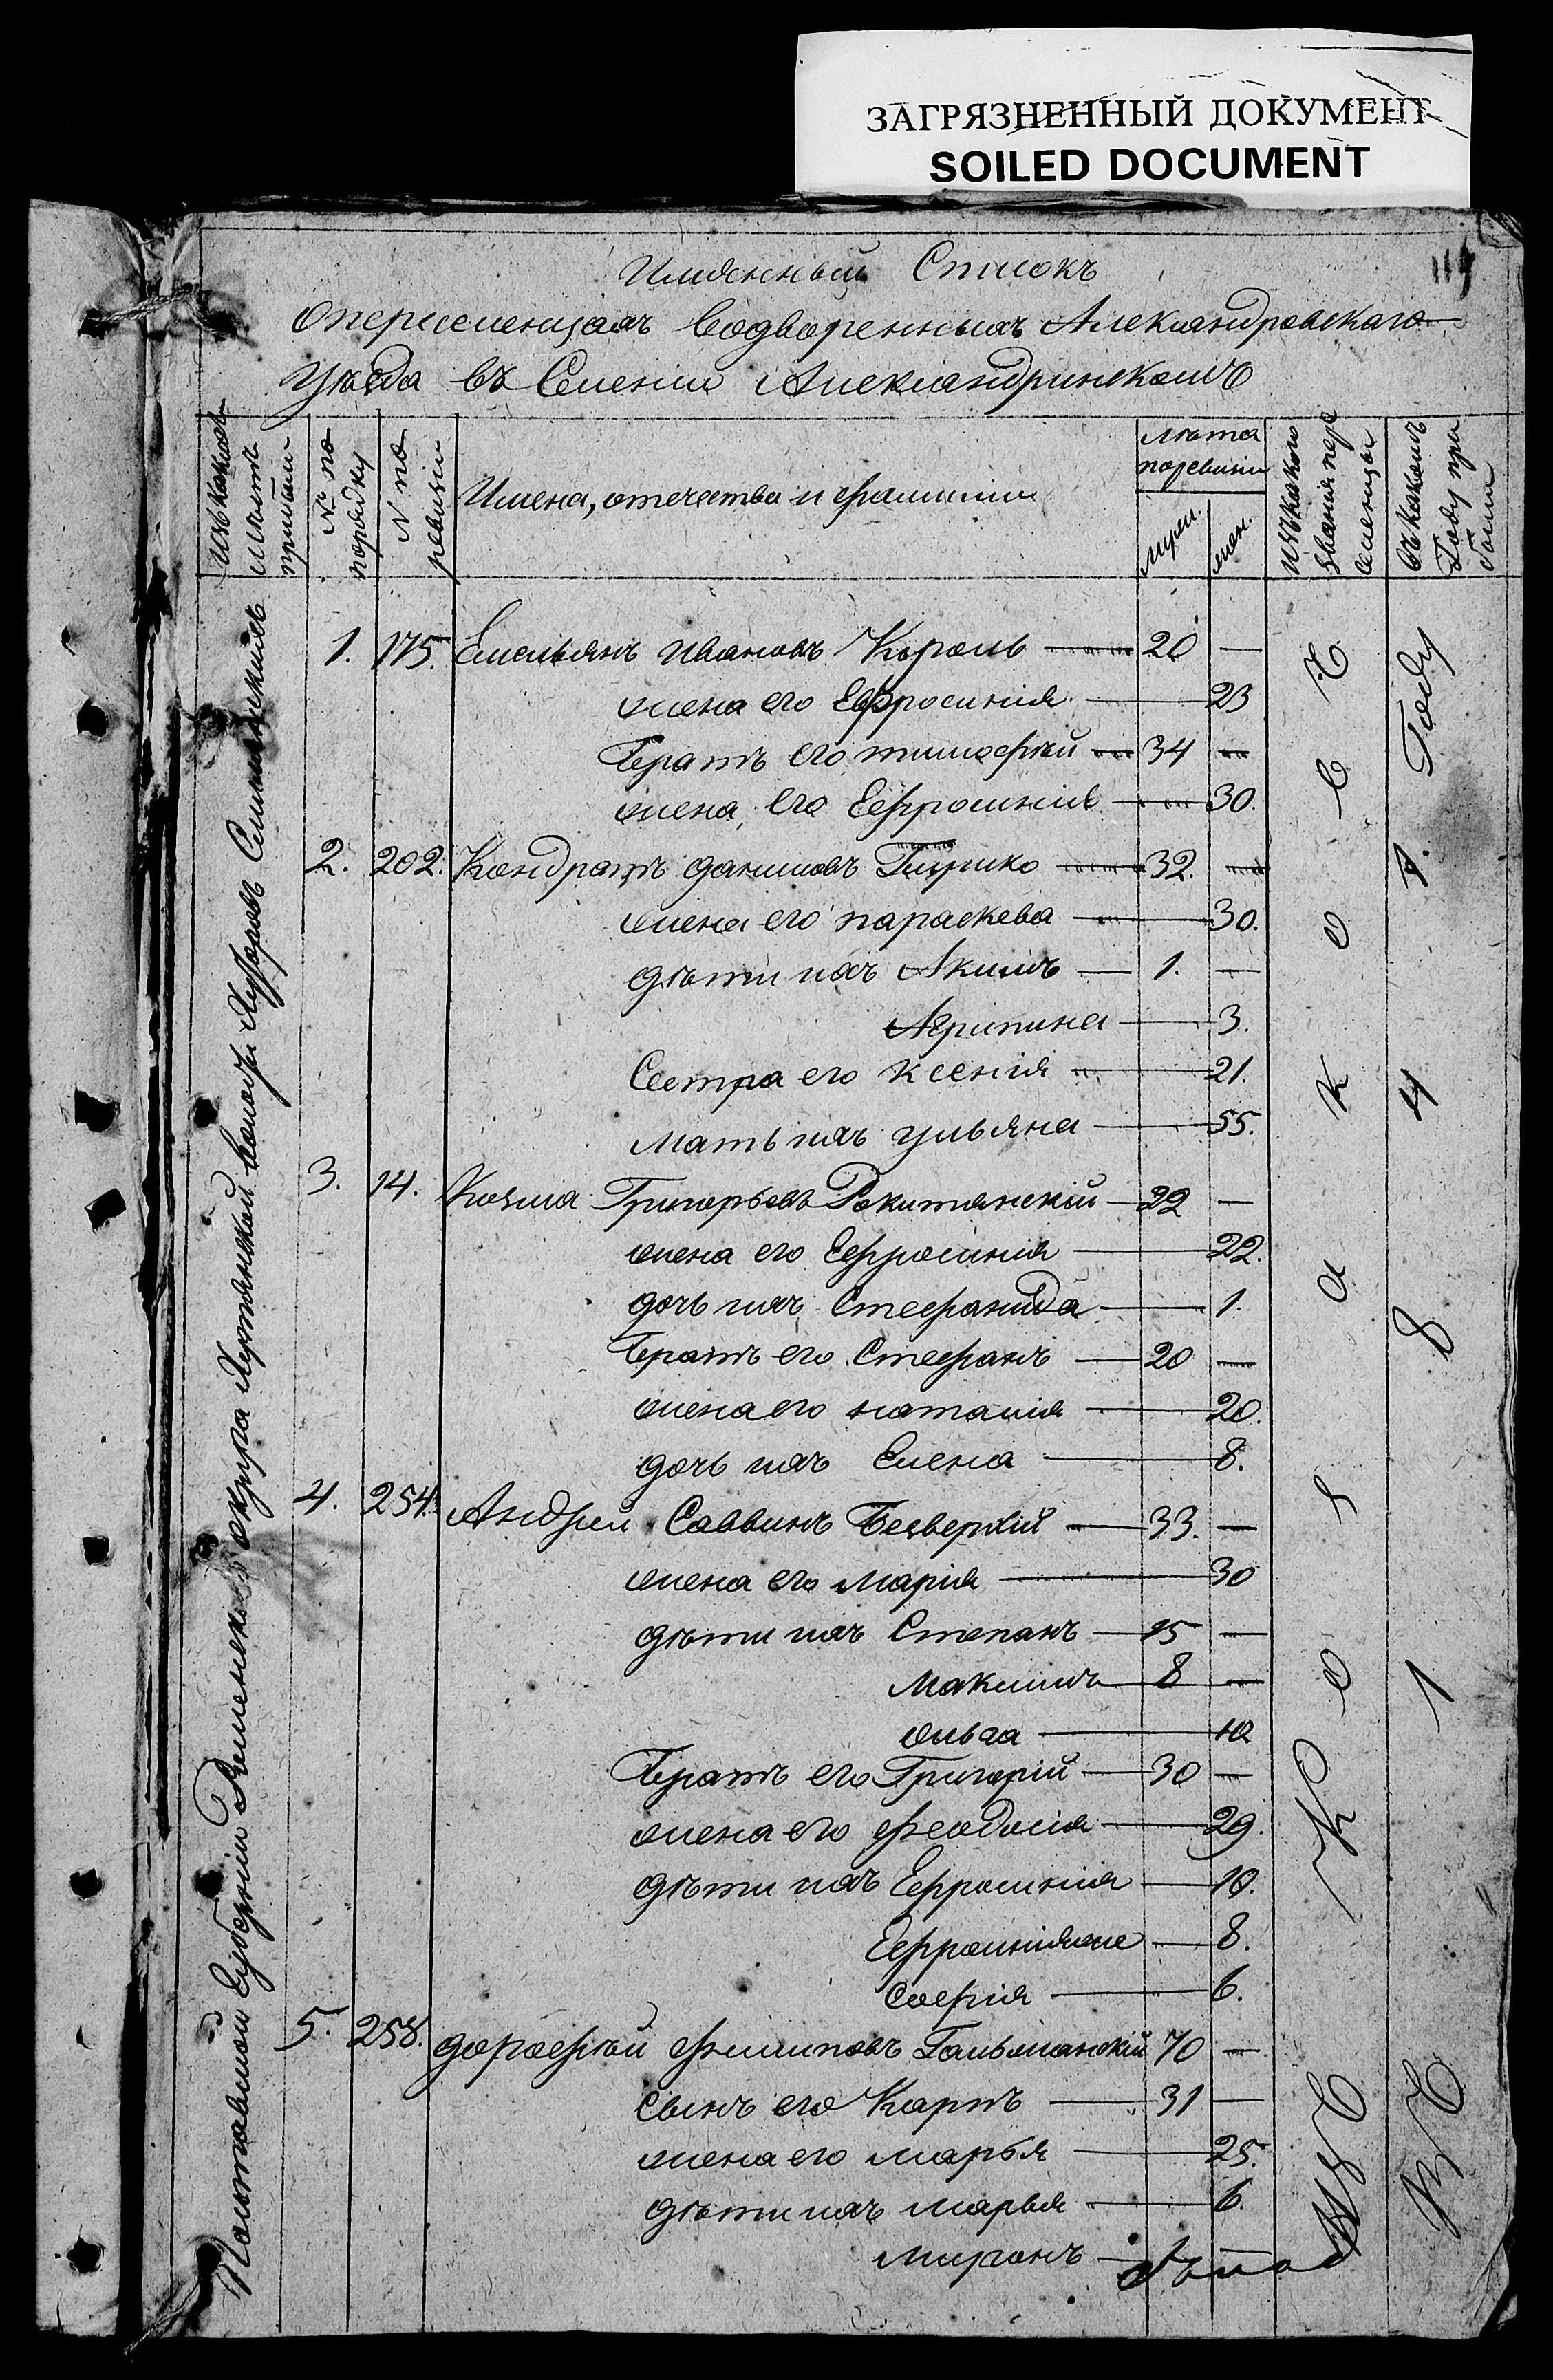 ЗАГРЯЗНЕННЫЙ ДОКУМЕНТ
SOILED DOCUMENT
Именный Списокъ
о переселенцахъ водворенныхъ Александровскаго
уѣзда въ Селеніи Александринскомъ
изъ какихъ мѣстъ прибыли
№ по порядку
№ по ревизіи
Имена, отечества и фамиліи
лѣта по ревизіи
муж.
жен.
изъ какого званія переселенцы
въ какомъ Году прибыли
Полтавской Губерніи Роменск округа
изъ Козаковъ
въ 184 Году
1. 175. Емельянъ Ивановъ Король 20 —
жена его Евфросинія 23
Братъ его тимофѣй 34 —
жена его Ефросинія 30.
2. 202. Кондратъ даниловъ 32. —
жена его параскева 30.
дѣти ихъ Акимъ 1. —
Агрипина 3.
Сестра его Ксенія 21.
мать ихъ ульяна 55.
3. 14. Козма Григорьевъ Рокитянскій 22 —
жена его Ефросинія 22.
дочь ихъ Стефанида 1.
Братъ его Стефанъ 20 —
жена его наталія 20.
дочь ихъ Елена 8.
4. 254. Андрей Саввинъ Безверхій 33. —
жена его Марія 30
дѣти ихъ Степанъ 15 —
Максимъ 8 —
ольга 10
Братъ его Григорій 30 —
жена его феодосія 29.
дѣти ихъ Ефросинія 10.
Ефросинія же 8.
Софія 6.
5. 258. дорофѣй филиповъ Гальманскій 70 —
сынъ его Карпъ 31 —
жена его марья 25.
дѣти ихъ марья 6.
миронъ